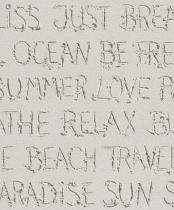 LiSS JUST BREA
L OCEAN BE FRE
SUMMER LOVE B
ATHE RELAX BL
E BEACH TRAVEL
PARADiSE SUN S